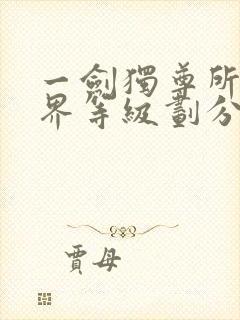 一劍獨尊所
界等級劃分
賈母